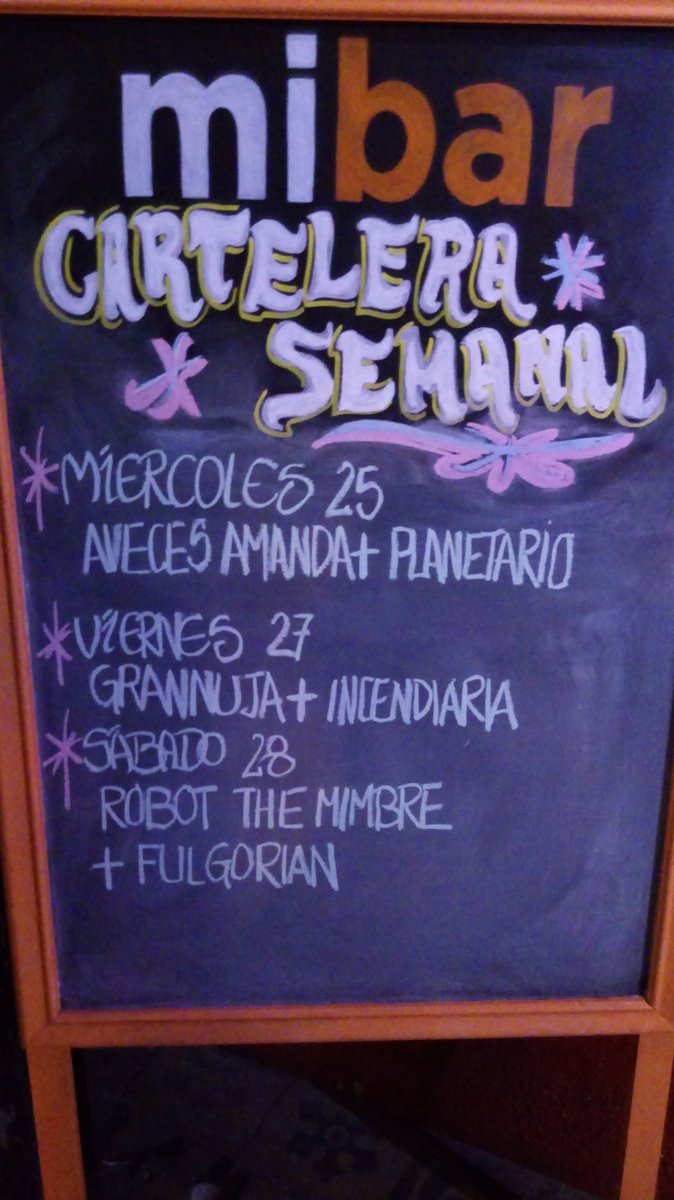 mibar
CARTELERA
SEMANAL
MIERCOLES 25
AVECES AMANDA + PLANETARIO
VIERNES 27
GRANNUJA + INCENDIARIA
SÁBADO 28
ROBOT THE MIMBRE
+ FULGORIAN